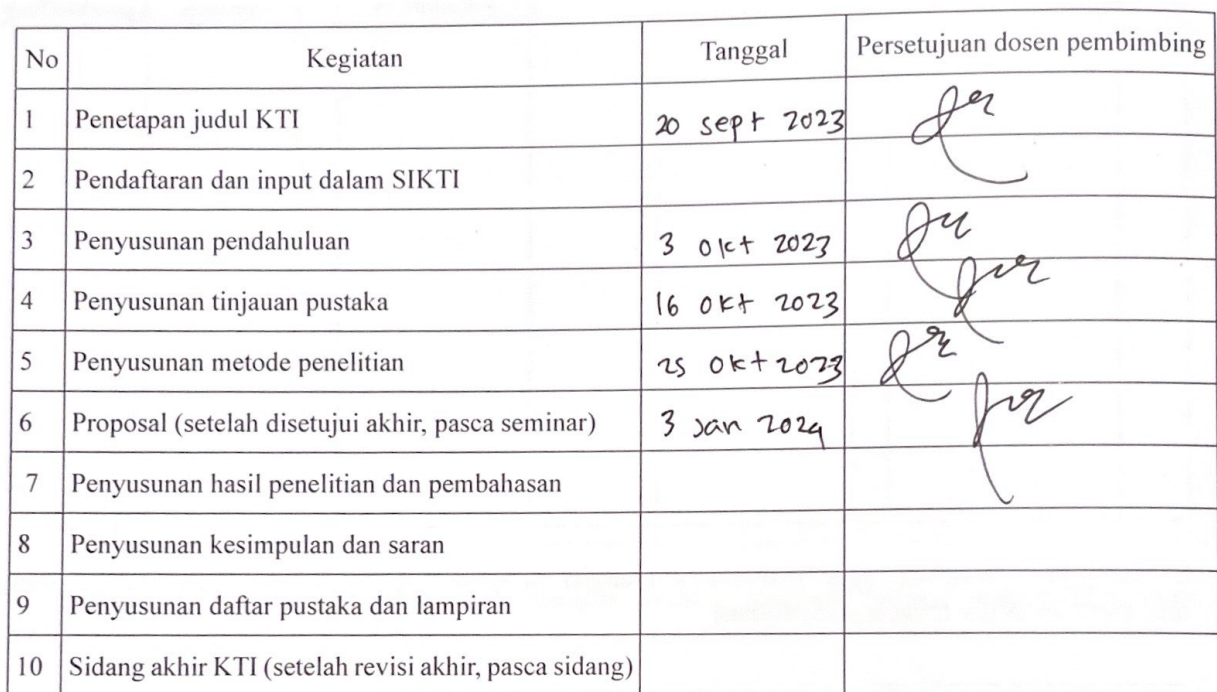 No Kegiatan Tanggal Persetujuan dosen pembimbing
1 Penetapan judul KTI 20 sept 2023
2 Pendaftaran dan input dalam SIKTI
3 Penyusunan pendahuluan 3 okt 2023
4 Penyusunan tinjauan pustaka 16 okt 2023
5 Penyusunan metode penelitian 25 okt 2023
6 Proposal (setelah disetujui akhir, pasca seminar) 3 Jan 2024
7 Penyusunan hasil penelitian dan pembahasan
8 Penyusunan kesimpulan dan saran
9 Penyusunan daftar pustaka dan lampiran
10 Sidang akhir KTI (setelah revisi akhir, pasca sidang)